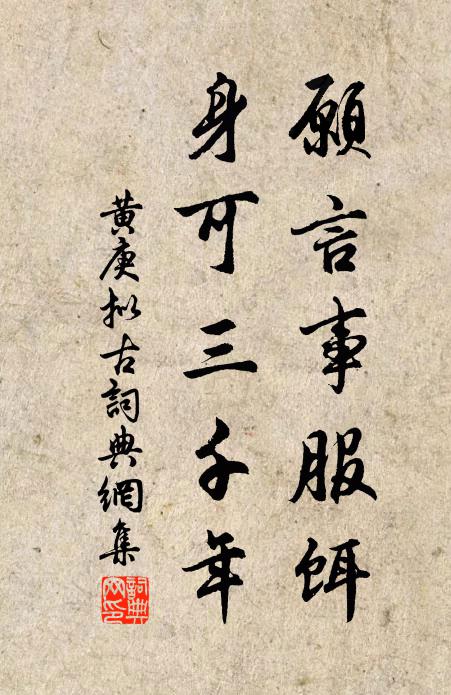 願言事服餌
身可三千年
黃庚拟古詞典網集
詞典网印